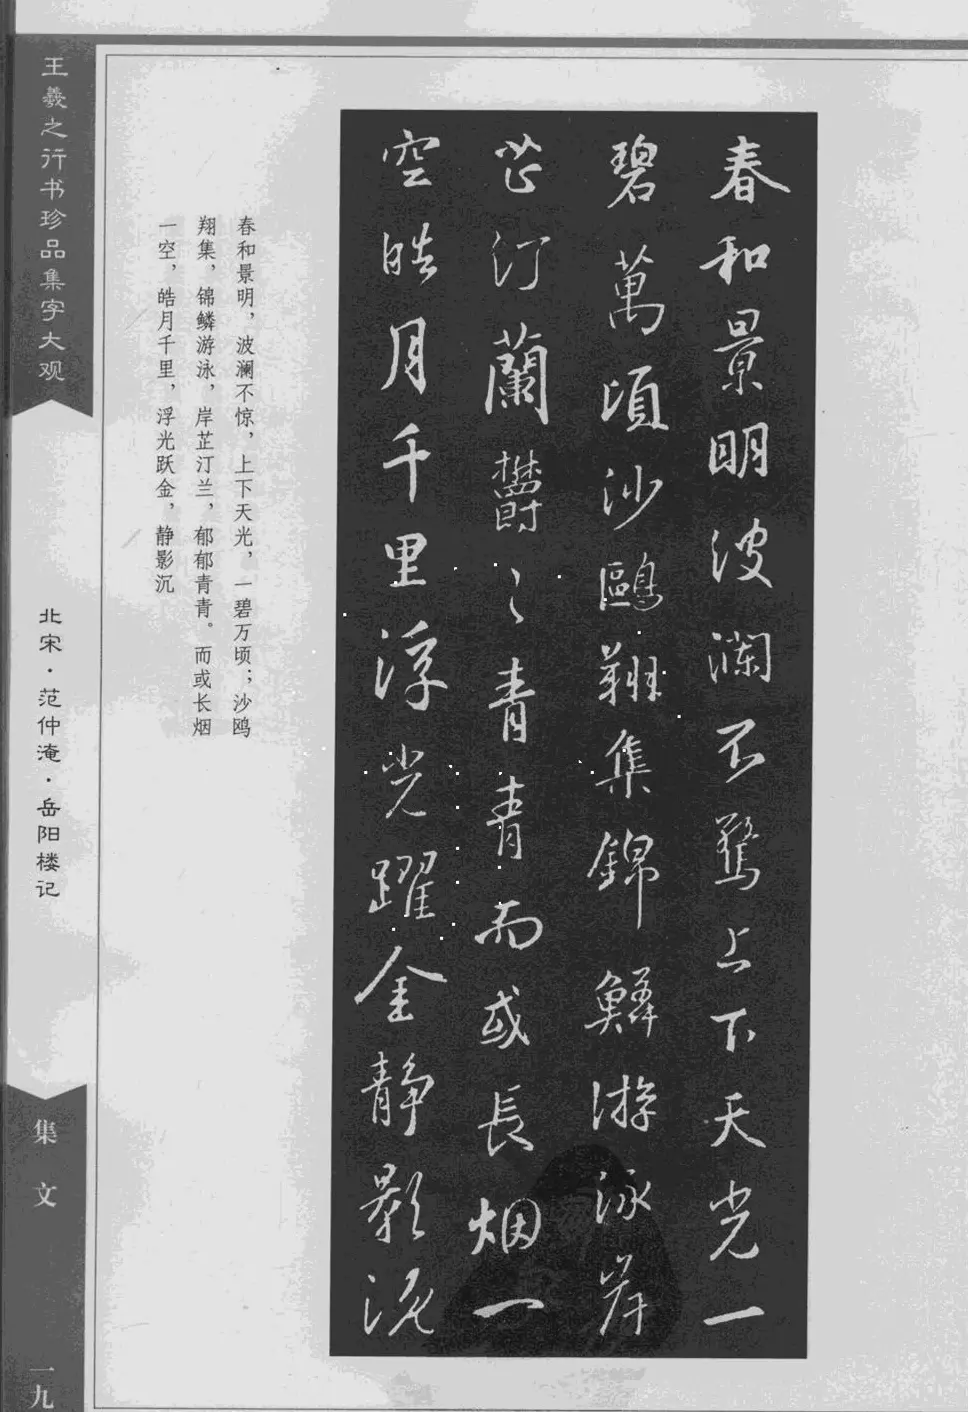 春和景明波瀾不驚上下天光一
碧萬頃沙鷗翔集錦鱗游泳岸
芷汀蘭鬱〻青青而或長烟一
空皓月千里浮光躍金静影沉
春和景明，波澜不惊，上下天光，一碧万顷；沙鸥
翔集，锦鳞游泳，岸芷汀兰，郁郁青青。而或长烟
一空，皓月千里，浮光跃金，静影沉
王羲之行书珍品集字大观
北宋·范仲淹·岳阳楼记
集文
一九